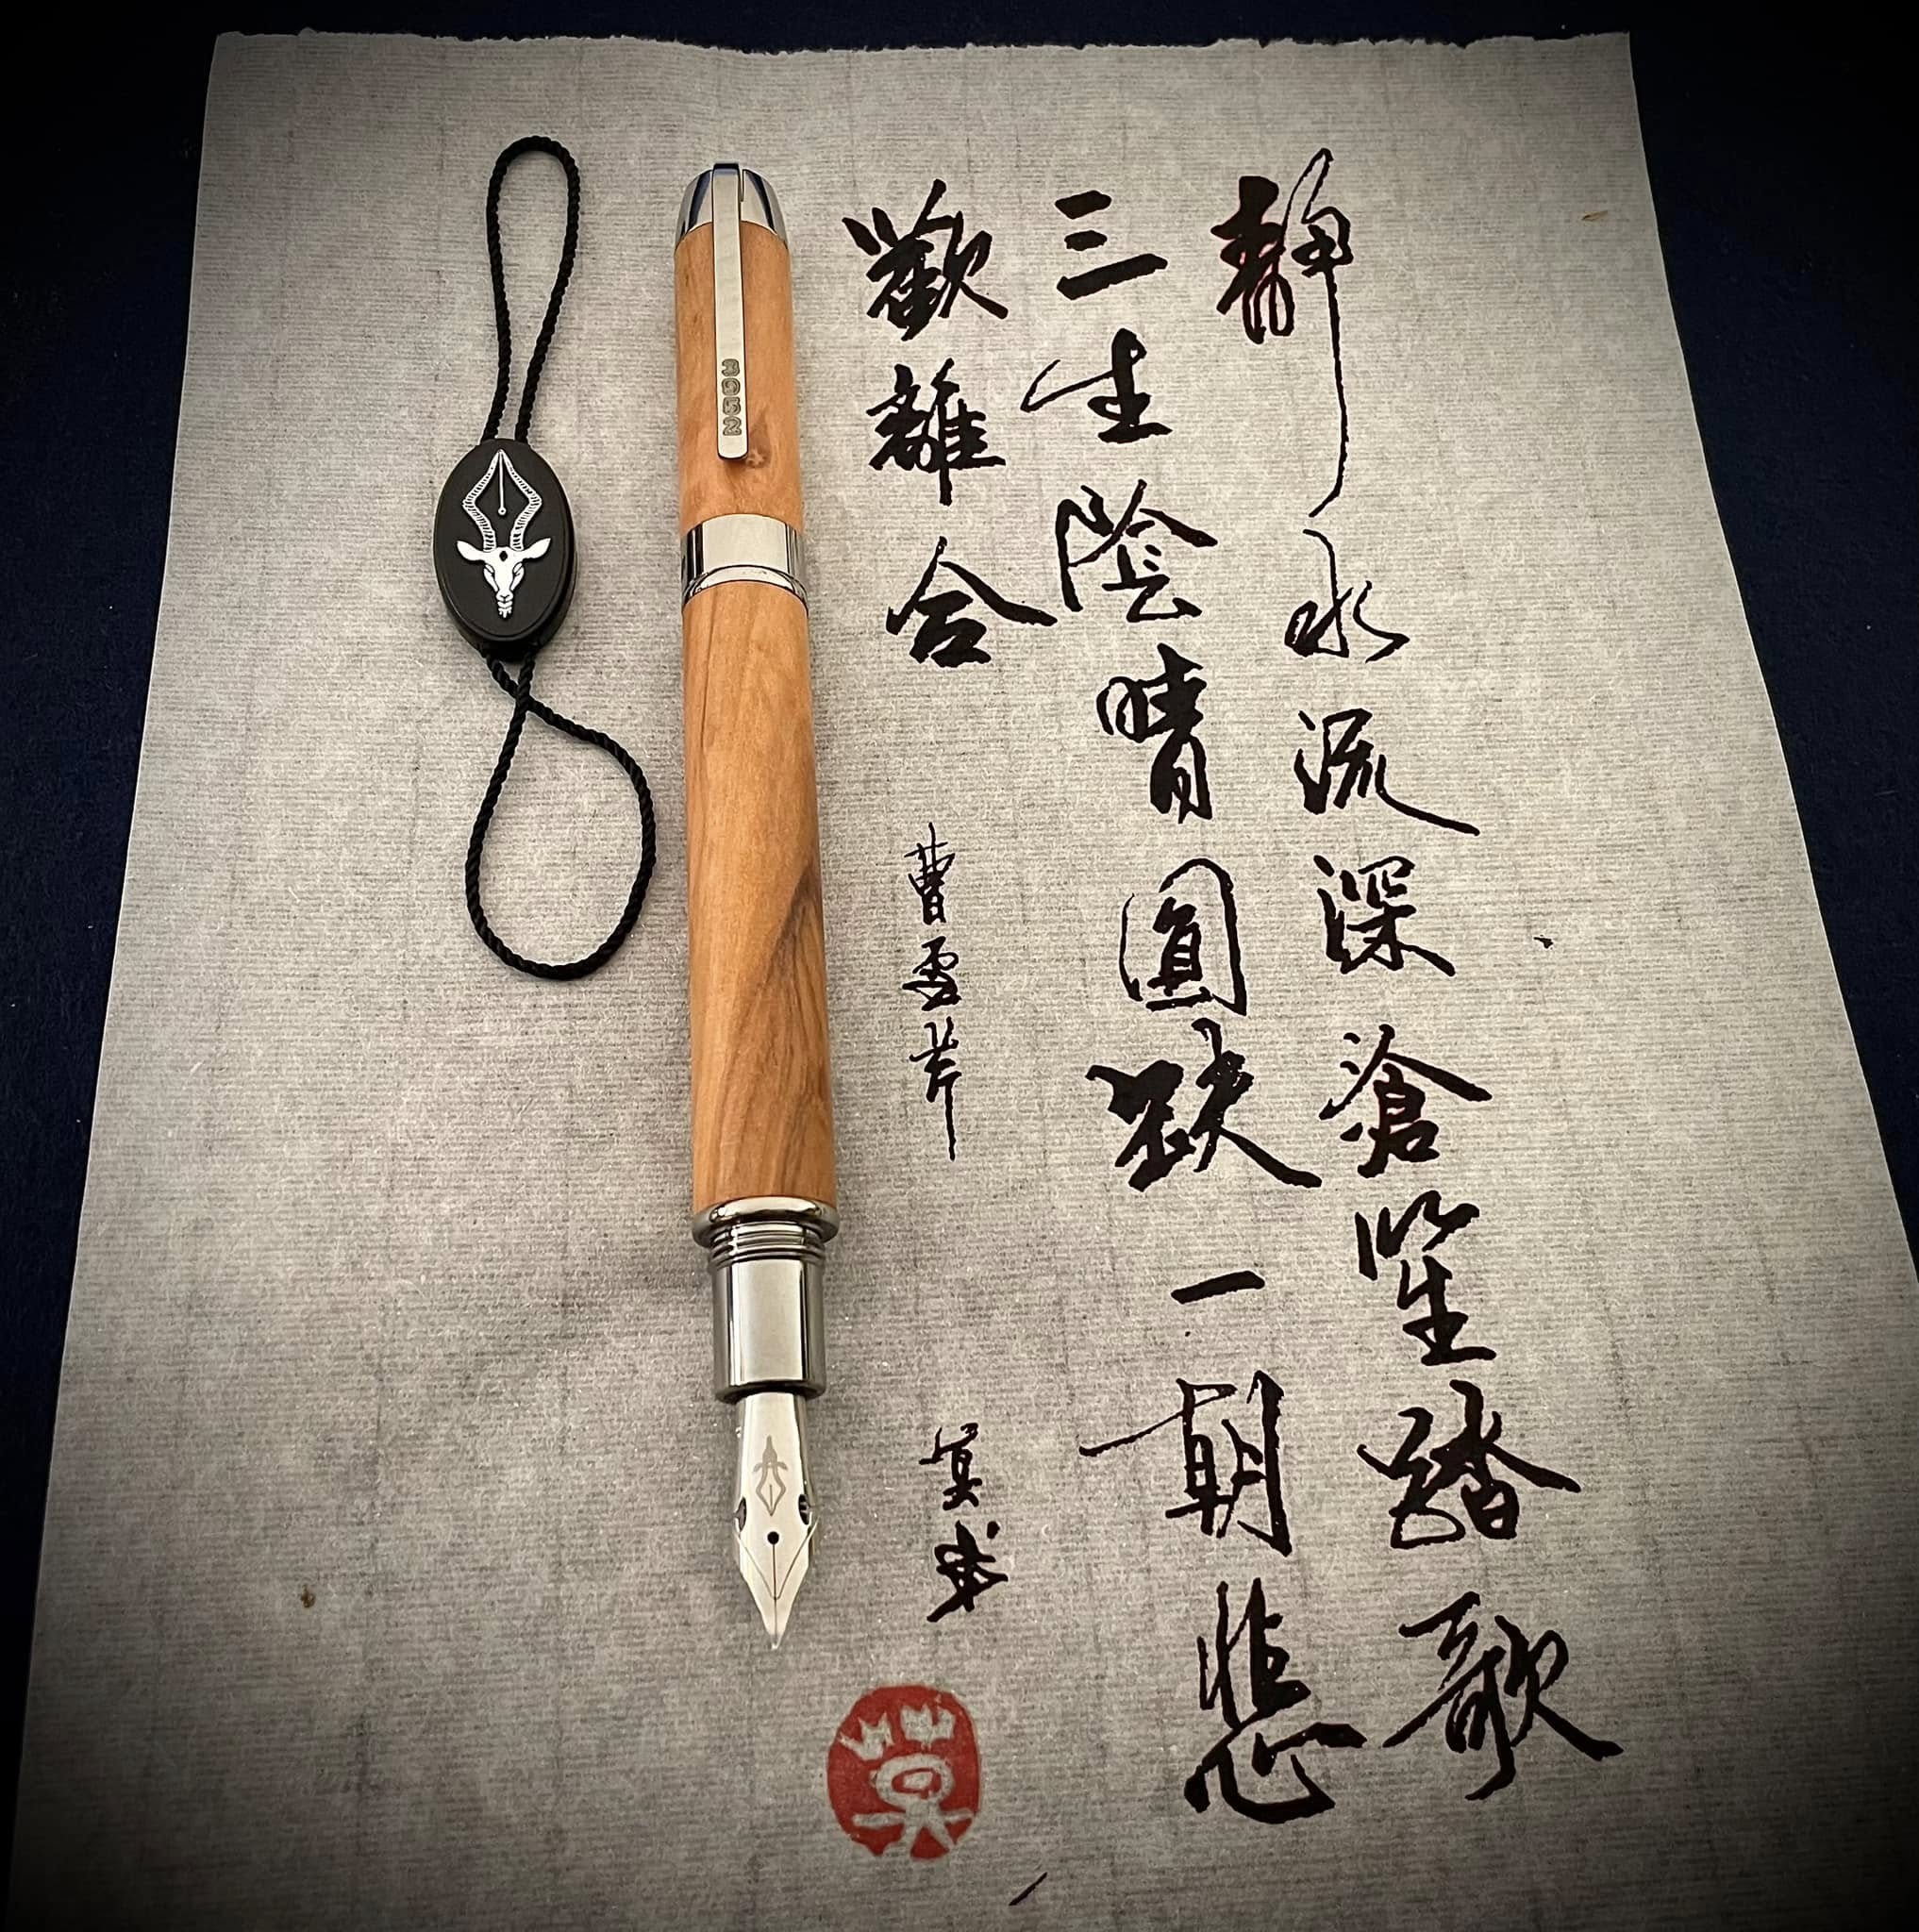 靜水流深滄笙踏歌
三生陰晴圓缺一朝悲
歡離合
曹雪芹
3952